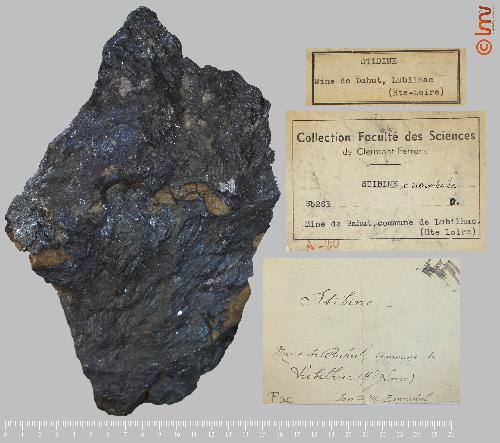 © lmv
STIBINE
Mine de Bahut, Lubilhac
(Hte-Loire)
Collection Faculté des Sciences
de Clermont-Ferrand
STIBINE
Sb2S3
Mine de Bahut, commune de Lubilhac.
(Hte Loire)
A-40
Stibine
Mine de Bahut, commune de
Lubilhac (Hte Loire)
Pac
0 1 2 3 4 5 6 7 8 9 10 11 12 13 14 15 16 17 18 19 20 21 22 23 24 25 26